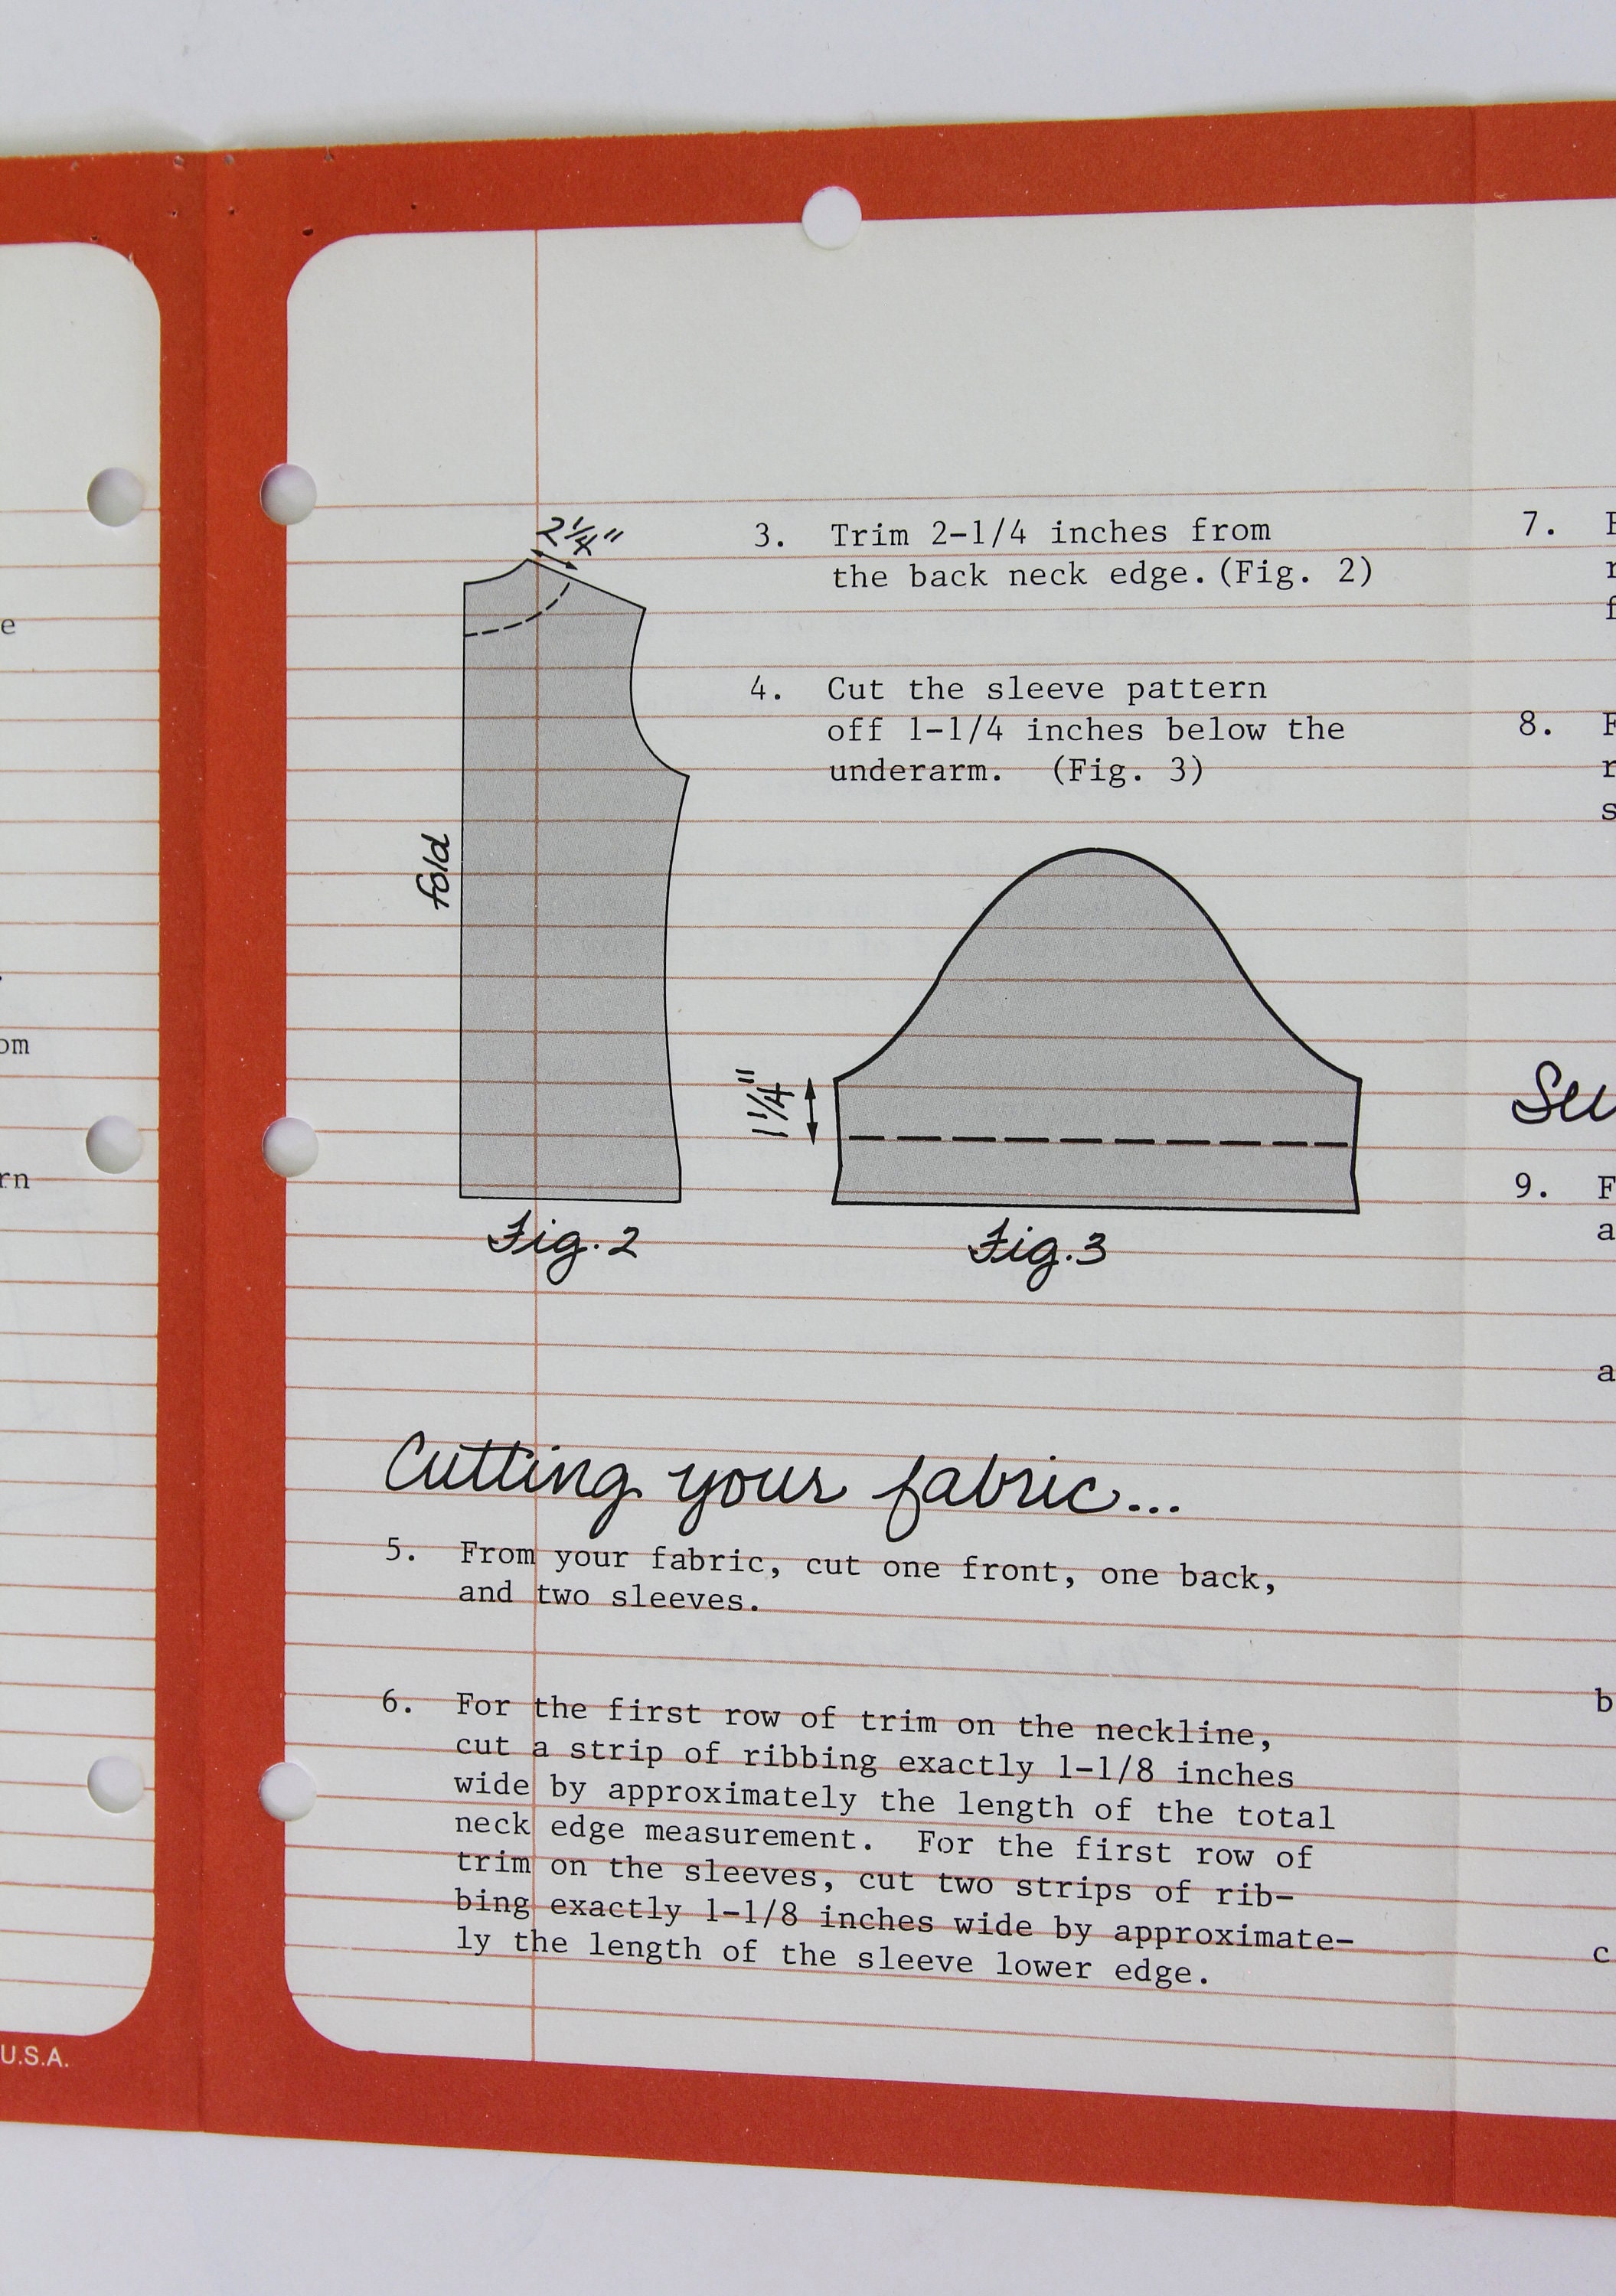 e
om
rn
U.S.A.
2 1/4"
3. Trim 2-1/4 inches from
the back neck edge. (Fig. 2)
4. Cut the sleeve pattern
off 1-1/4 inches below the
underarm. (Fig. 3)
fold
1 1/4"
Fig. 2
Fig. 3
Cutting your fabric...
5. From your fabric, cut one front, one back,
and two sleeves.
6. For the first row of trim on the neckline,
cut a strip of ribbing exactly 1-1/8 inches
wide by approximately the length of the total
neck edge measurement. For the first row of
trim on the sleeves, cut two strips of rib-
bing exactly 1-1/8 inches wide by approximate-
ly the length of the sleeve lower edge.
7.
8.
9. F
a
a
b
c